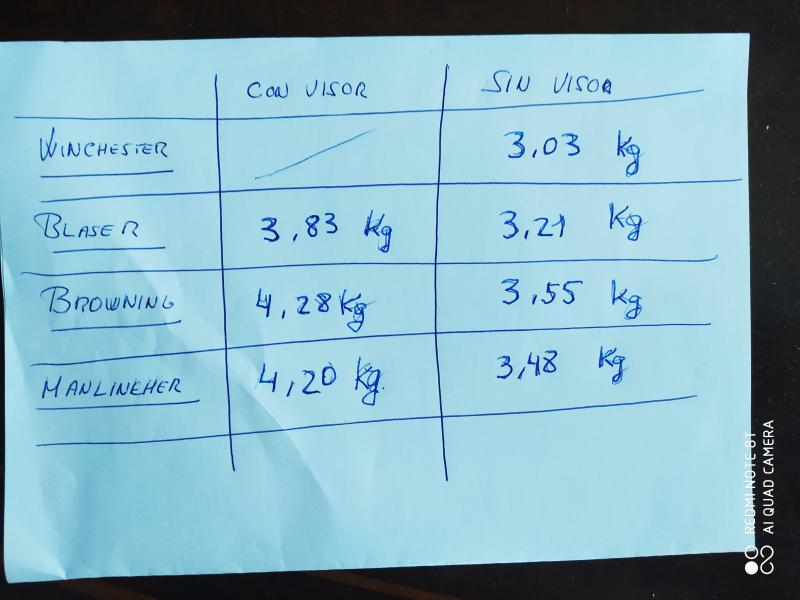 CON VISOR SIN VISOR
WINCHESTER 3,03 kg
BLASER 3,83 Kg 3,21 Kg
BROWNING 4,28 Kg 3,55 Kg
MANLINEHER 4,20 Kg. 3,48 Kg
REDMI NOTE 8T
AI QUAD CAMERA